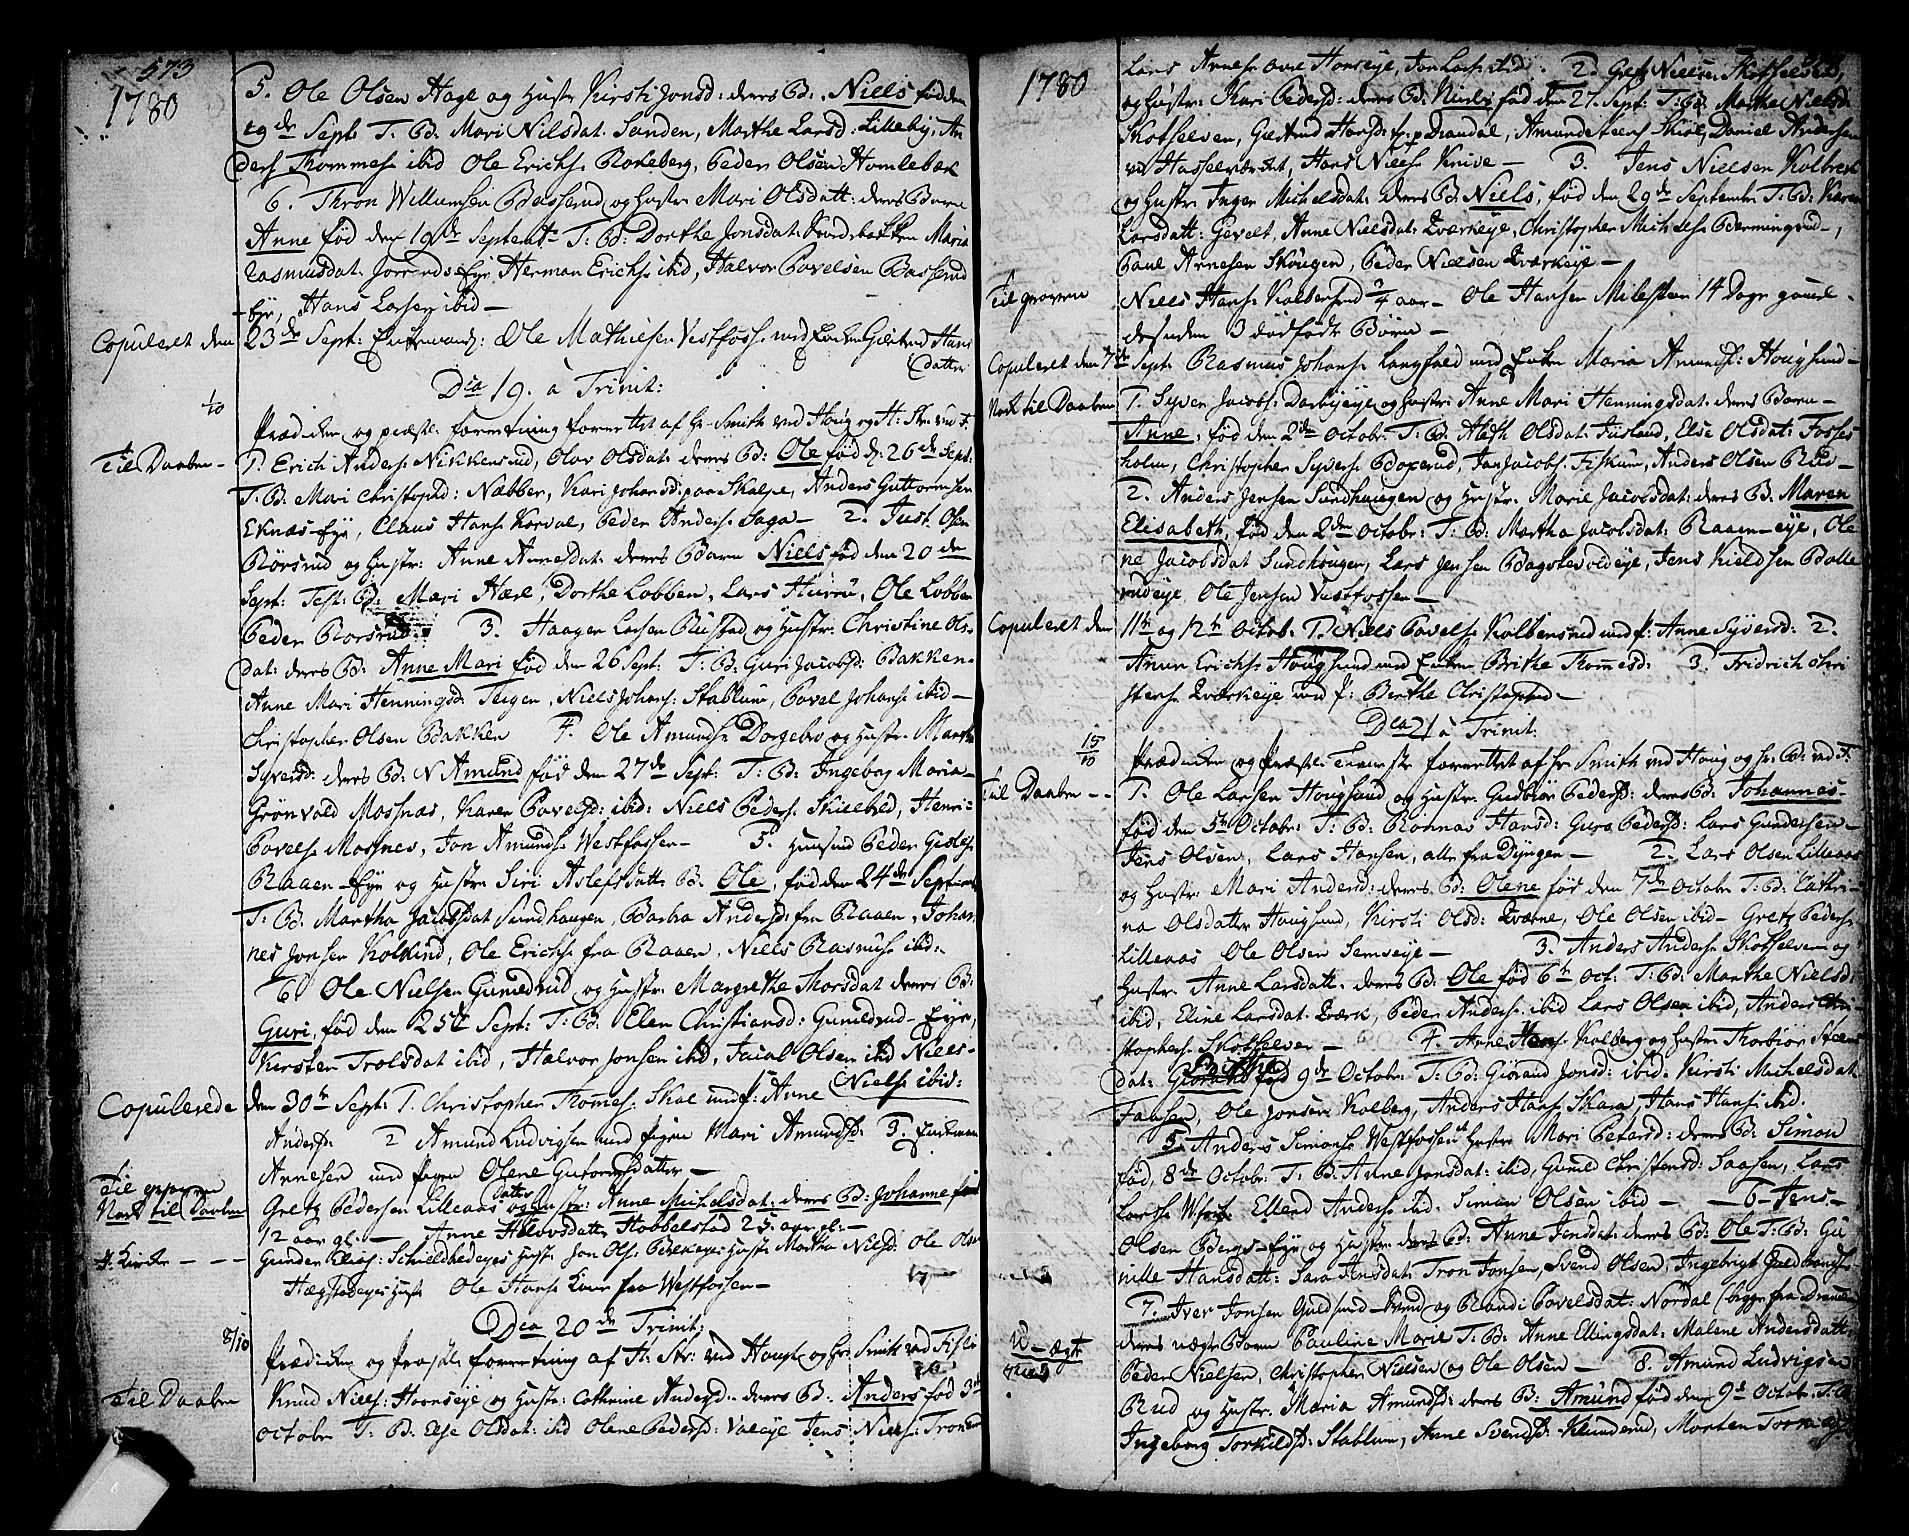 573
1780
5. Ole Olsen Hage og Hustr Kirsti Jonsd: deres B: Niels fød den
19de Sept: T: B: Mari Nilsdat. Sanden, Marthe Larsd: Lilleby, An
ders Thommes: ibid Ole Erichs: Rokeberg, Peder Olsen Homlebek
6. Thron Willumsen Basserud og Hustr Mari Olsdatt: deres Barn
Anne fød den 19de Septembr T: B: Dorthe Jonsdat: Maria
Rasmusdat: Eye Herman Erichs: ibid, Halvor Povelsen Basserud
Eye, Hans Larsen ibid —
Copuleret den 23de Sept: Enkemand: Ole Mathiesen Vestfoss: med Enken Giertrud Hans
datter
Dca 19. à Trinit:
1/10
Prædiken og præstl: forretning forrettet af Hr Smith ved Houg og H. Str: ved F.
Til Daaben — 1. Erich Anders: Nikkerud, Olav Olsdat: deres B: Ole fød d: 26de Sept:
T: B: Mari Christophd: Næbber, Kari Johansd: paa Skalpe, Anders Guttormsen
Eknæs-Eye, Claus Hans: Korval, Peder Anders: Saga — 2. Just Olsen
Børsrud og Hustr: Anne Arnesdat: deres Barn Niels fød den 20de
Sept: Test: B: Mari Hære, Dorthe Lobben, Lars Hurru, Ole Lobben
Peder Borsrud. 3. Haagen Larsen Rustad og Hustr: Christine Ols-
dat: deres B: Anne Mari fød den 26 Sept: T: B: Guri Jacobsd: Bakken-
Anne Mari Henningsd: Teigen, Niels Johans: Stablum, Povel Johans: ibid —
Christopher Olsen Bakken 4. Ole Amunds: Dorgebro og Hustr: Marthe
Syversd: deres B: N Amund fød den 27de Sept: T: B: Ingebor Maria
Grönvold Mossnæs, Karen Povelsd: ibid: Niels Peders: Skielbred, Henri-
Povels: Mosnes, Jon Amunds: Westfossen — 5. Huusmd Peder Gisles:
Raaen-Eye og Hustr: Siri Aslefsdatt B. Ole, fød den 24de Septembr
T: B: Martha Jacobsdat Sundhaugen, Barbra Andersd: fra Raaen, Johan
nes Jonsen Kolkind, Ole Erichs: fra Raaen, Niels Rasmus: ibid:
6. Ole Nielsen Gunildrud og Hustr: Margrethe Thorsdat deres B:
Guri, fød den 25de Sept: T: B: Elen Christiansd: Gunildrud-Eye,
Kirsten Trolsdat ibid, Halvor Jonsen ibid, Jacob Olsen ibid Niels
Niels: ibid:
Copulerede den 30te Sept: 1. Christopher Thomes: Skal med f: Anne
Andersd: 2 Amund Ludvigsen med pigen Mari Amundsd: 3. Enkemand
Arnesen med pigen Olene Gutormsdatter —
Til graven
Nock til Daaben Gretz Pedersen Lilleaas og Hustr: Anne Michelsdat: deres B: Johanne
datter
12 aar gl: — Anne Halvorsdatter Hobbelstad 25 aar gl: —
H. Kirke — — — Gunder Elias: Hustr Jon Ols: Hustr Martha Nilsd: Ole Ols:
Hægstadeyes Hust Ole Hans: fra Westfossen —
17
Dca 20de Trinit:
8/10 Prædiken og Præstl: forretning af H: Str: ved Hougs og Hr: Smith ved Fiske
20
Til Daaben Knud Niels: Hoenseye og Hustr: Cathrine Andersd: deres B: Anders fød 3de
October T: B: Else Olsdat: ibid Olene Pedersd: Jens Niels:
1780
Lars Arnes: Øvre Honseye, Jon Lars: ibid. 2. Niels: Skotselven,
og Hustr: Kari Pedersd: deres B: Niels fød den 27 Sept: T: B: Marthe Nielsd:
Skotselven, Giertrud Hansd: Amund Steens: Skiøl, Daniel Andersen
ved Hasselværket, Hans Niels: Knive — 3. Jens Nielsen Kolbræk
og Hustr Inger Michelsdat: deres B: Niels, fød den 29de September T: B: Karen
Larsdatt: Gevelt, Anne Nielsdat: Qværkeye, Christopher Michels: Bermingrud,
Paul Arnesen Skougen, Peder Nielsen Qværkeye —
Til graven Niels Hans: Kolbersrud 3/4 aar — Ole Hansen Milesteen 14 Dage gamel
desuden 3 dødfødte Børn —
Copuleret den 7de Sept: Rasmus Johans: Langfald med Enken Maria Amunds: Hougsund —
Nock til Daaben 1. Syver Jacobs: Darbyeye og Hustr: Anne Mari Henningsdat: deres Barn
Anne, fød den 2den Octobr: T: B: Aleth Olsdat: Fiisland, Else Olsdat: Fosses
holm, Christopher Syvers: Boxerud, Jan Jacobs: Fiskum, Anders Olsen Rud —
2. Anders Jensen Sundhaugen og Hustr: Marie Jacobsdat: deres B: Maren
Elisabeth, fød den 2den Octobr: T: B: Martha Jacobsdat: Raaen-eye, Ole
ne Jacobsdat Sundhougen, Lars Jensen Bagstevoldeye, Jens Kieldsen Bolle
rudeye, Ole Jensen Vestfossen —
Copuleret den 11te og 12te Octob: 1. Niels Povels: Kolbersrud med f: Anne Syversd: 2.
Amun Erichs: Hougsund med Enken Brithe Thomesd: 3. Fridrich Chri
stens: Qværkeye med f: Berthe Christophsd —
Dca 21 à Trinit:
15/10 Prædiken og Præstel: Tieneste forrettet af Hr Smith ved Houg og Hr: B: ved F:
Til Daaben — — 1. Ole Larsen Hougsund og Hustr: Gudbiør Pedersd: deres B: Johannes
fød den 5te Octobr: T: B: Rønnau Hansd: Gura Pedersd: Lars Gundersen —
Jens Olsen, Lars Hansen, alle fra Dyngen — 2. Lars Olsen Lilleaas
og Hustr: Mari Andersd: deres B: Olene fød den 7de Octobr T: B: Cathri-
na Olsdatter Hougsund, Kirsti Olsd: Qværne, Ole Olsen ibid — Gretz Peders:
Lilleaas Ole Olsen Semseye — 3. Anders Anders: Skotselven og
Hustr: Anne Larsdatt: deres B: Ole fød 6te Oct: T: B: Marthe Nielsd:
ibid, Eline Larsdat: Qværk, Peder Anders: ibid Lars Olsen ibid, Anders Chri
stophers: Skotselven — 4. Arne Hans: Kolberg og Hustr: Thorbiør Steens
dat: fød 9de Octobr: T: B: Giørand Jonsd: ibid: Kirsti Michelsdat
Faasen, Ole Jonsen Kolberg, Anders Hans: Skara, Hans Hans: ibid.
5 Anders Simons: Westfossen et Hustr: Mari Petersd: deres B: Simon
fød, 8de Octobr: T: B: Anne Jonsdat: ibid, Gunild Christensd: Saasen, Lars
Larss: Ellend Anders: ibid. Simon Olsen ibid — 6. Jens
Olsen Bergs-Eye og Hustr: Anne Jensdat: deres B: Ole T: B: Gu
nille Hansdatt: Sara Jensdat: Tron Jonsen, Svend Olsen, Ingebrigt Guldbrands:
7. Iver Jonsen Guldsmed Svend og Randi Povelsdat: Nordal (begge fra Drammen
U-ægt deres uægte Barn Pauline Marie T: B: Anne Ellingsdat: Malene Andersdatt:
Peder Nielsen, Christopher Nielsen og Ole Olsen — 8. Amund Ludvigsen
Rud og Hustr: Maria Amundsd: deres B: Amund fød den 9de Octobr: T: B:
Ingeborg Torkildsd: Stablum, Anne Svendsd: Klunderud, Morten